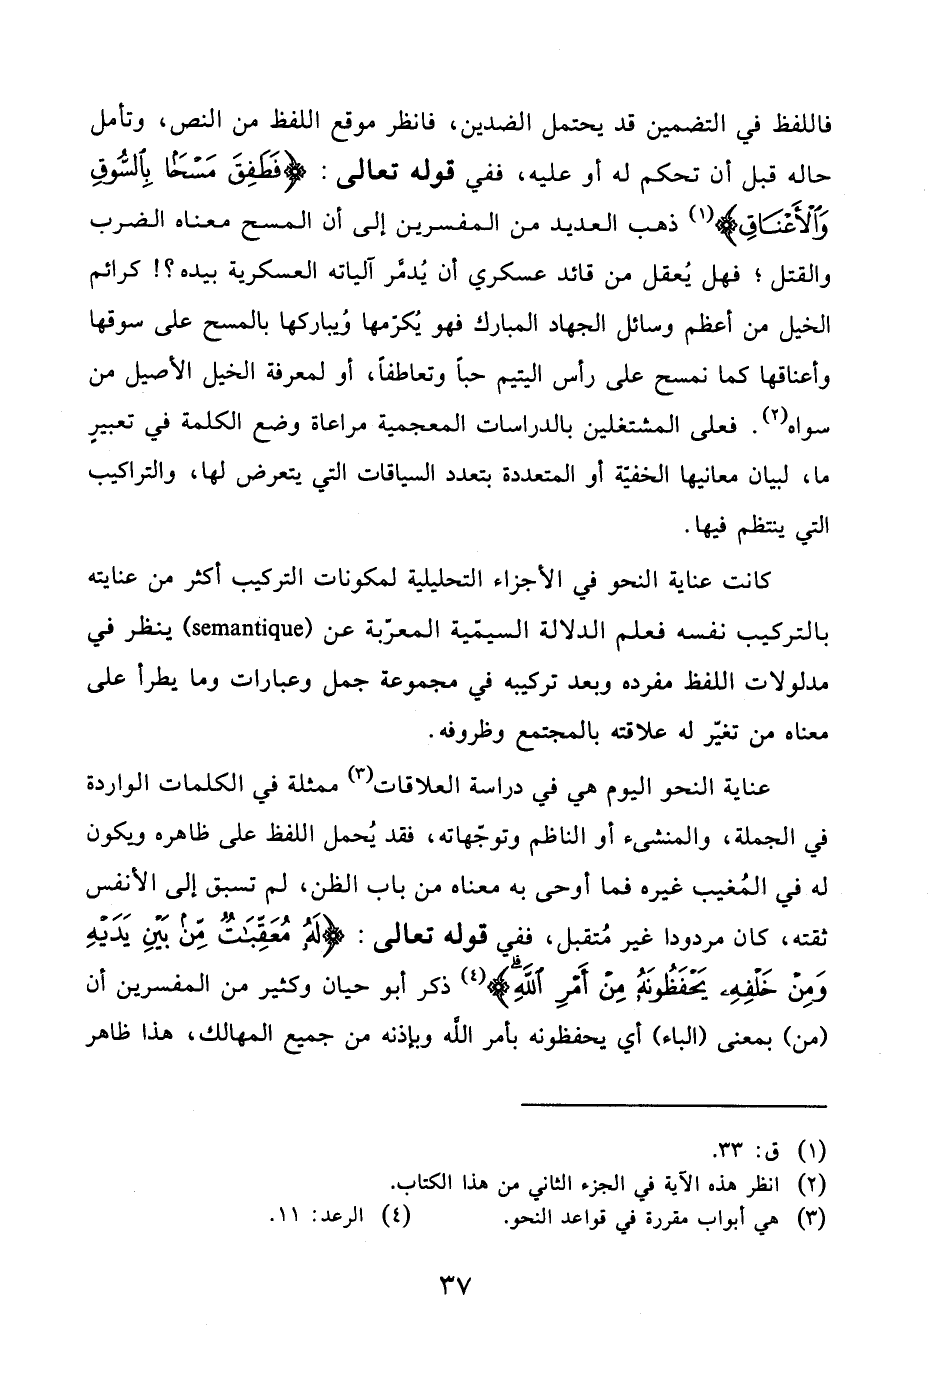 فاللفظ في التضمين قد يحتمل الضدين، فانظر موقع اللفظ من النص، وتأمل
حاله قبل أن تحكم له أو عليه، ففي قوله تعالى : ﴿فَطَفِقَ مَسْحًۢا بِٱلسُّوقِ
وَٱلْأَعْنَاقِ﴾(١) ذهب العديد من المفسرين إلى أن المسح معناه الضرب
والقتل ؛ فهل يُعقل من قائد عسكري أن يُدمَّر آلياته العسكرية بيده ؟! كرائم
الخيل من أعظم وسائل الجهاد المبارك فهو يُكرّمها وُيباركها بالمسح على سوقها
وأعناقها كما نمسح على رأس اليتيم حباً وتعاطفاً، أو لمعرفة الخيل الأصيل من
سواه(٢). فعلى المشتغلين بالدراسات المعجمية مراعاة وضع الكلمة في تعبيرٍ
ما، لبيان معانيها الخفيّة أو المتعددة بتعدد السياقات التي يتعرض لها، والتراكيب
التي ينتظم فيها.
كانت عناية النحو في الأجزاء التحليلية لمكونات التركيب أكثر من عنايته
بالتركيب نفسه فعلم الدلالة السيمّية المعرّبة عن (semantique) ينظر في
مدلولات اللفظ مفرده وبعد تركيبه في مجموعة جمل وعبارات وما يطرأ على
معناه من تغيّر له علاقته بالمجتمع وظروفه.
عناية النحو اليوم هي في دراسة العلاقات(٣) ممثلة في الكلمات الواردة
في الجملة، والمنشىء أو الناظم وتوجّهاته، فقد يُحمل اللفظ على ظاهره ويكون
له في المُغيب غيره فما أوحى به معناه من باب الظن، لم تسبق إلى الأنفس
ثقته، كان مردودا غير مُتقبل، ففي قوله تعالى : ﴿لَهُۥ مُعَقِّبَٰتٌ مِّنۢ بَيْنِ يَدَيْهِ
وَمِنْ خَلْفِهِۦ يَحْفَظُونَهُۥ مِنْ أَمْرِ ٱللَّهِۗ﴾(٤) ذكر أبو حيان وكثير من المفسرين أن
(من) بمعنى (الباء) أي يحفظونه بأمر اللَّه وبإذنه من جميع المهالك، هذا ظاهر
(١) ق: ٣٣.
(٢) انظر هذه الآية في الجزء الثاني من هذا الكتاب.
(٣) هي أبواب مقررة في قواعد النحو. (٤) الرعد: ١١.
٣٧